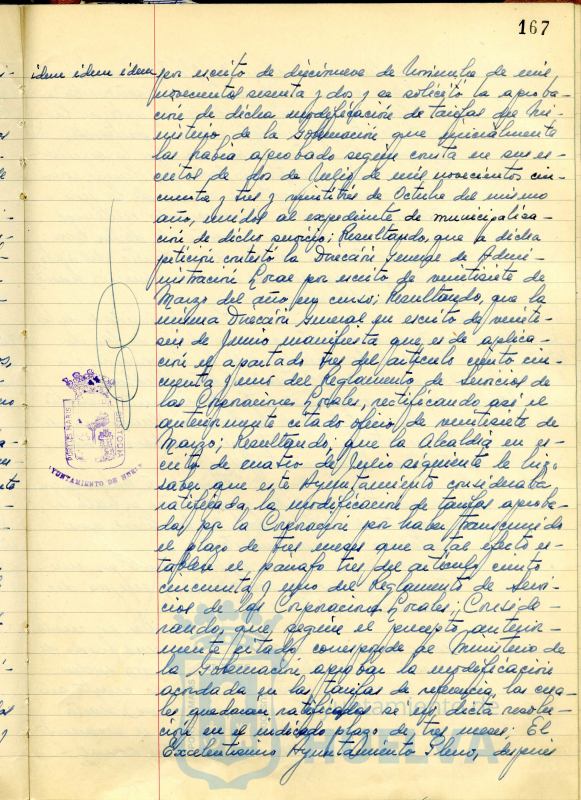 167
idem idem idem
por escrito de diecinueve de Noviembre de mil
novecientos sesenta y dos y se solicitó la aproba-
ción de dicha modificación de tarifas del Mi-
nisterio de la Gobernación que inicialmente
las había aprobado según consta en sus es-
critos de dos de Julio de mil novecientos cin-
cuenta y tres y veintitrés de Octubre del mismo
año, unidos al expediente de municipaliza-
ción de dicho servicio; Resultando, que a dicha
petición contestó la Dirección General de Admi-
nistración Local por escrito de veintisiete de
Marzo del año en curso; Resultando, que la
misma Dirección General en escrito de veinti-
seis de Junio manifiesta que es de aplica-
ción el apartado tres del artículo ciento cin-
cuenta y uno del Reglamento de Servicios de
las Corporaciones Locales, rectificando así el
anteriormente citado oficio de veintisiete de
Marzo; Resultando, que la Alcaldía en es-
crito de cuatro de Julio siguiente le hizo
saber que este Ayuntamiento consideraba
ratificada la modificación de tarifas aproba-
das por la Corporación por haber transcurrido
el plazo de tres meses que a tal efecto es-
tablece el párrafo tres del artículo ciento
cincuenta y uno del Reglamento de Servi-
cios de las Corporaciones Locales; Conside-
rando, que según el precepto anterior-
mente citado corresponde al Ministerio de
la Gobernación aprobar la modificación
acordada en las tarifas de referencia, las cua-
les quedarán ratificadas si no dicta resolu-
ción en el indicado plazo de tres meses; El
Excelentísimo Ayuntamiento Pleno, después
PORTUS MARIS
CUSTODIA
AYUNTAMIENTO DE HUELVA
Ayuntamiento de
HUELVA